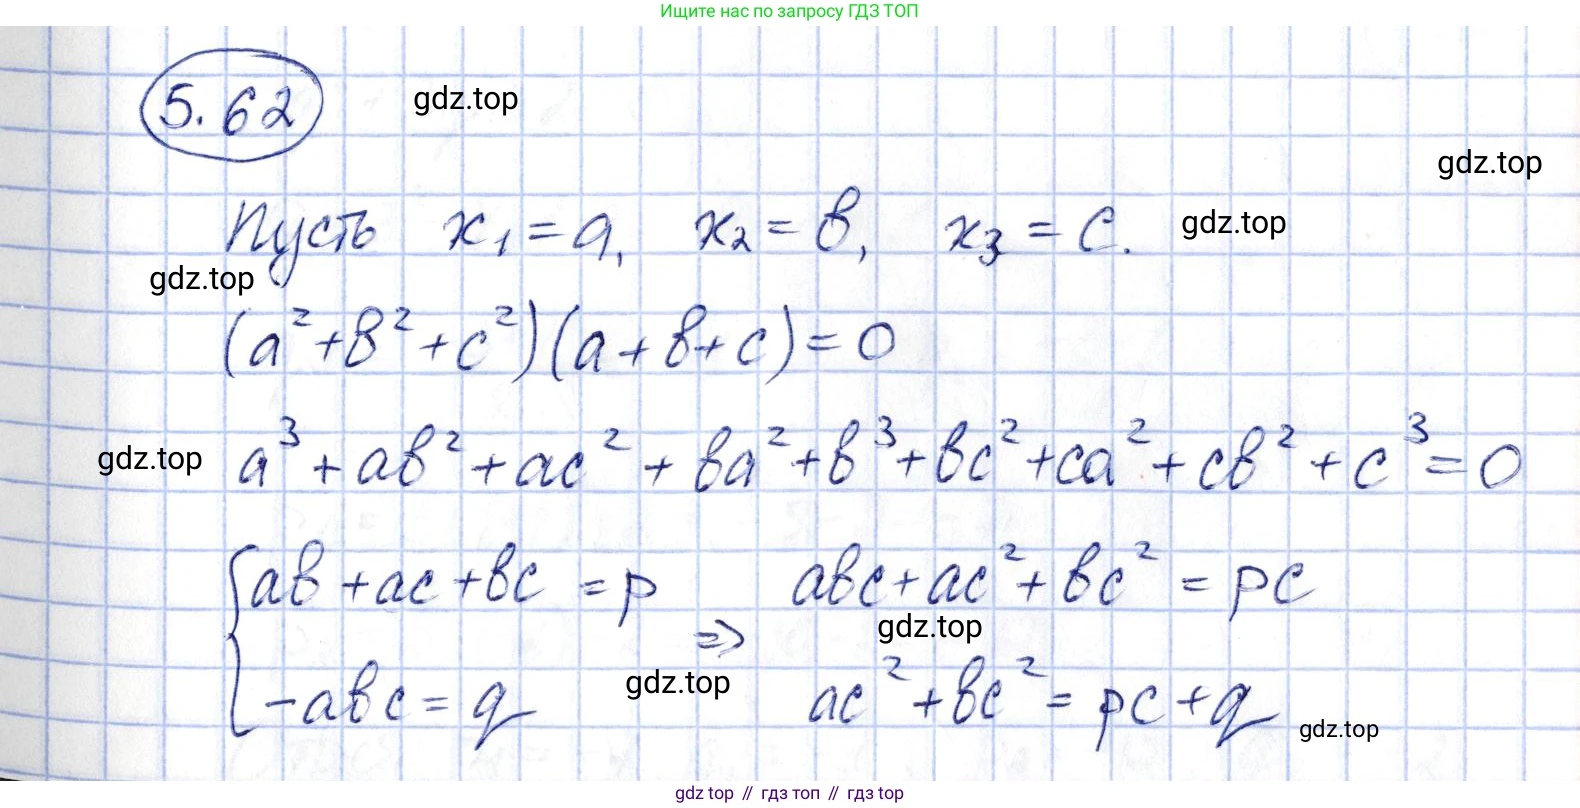 Ищите нас по запросу ГДЗ ТОП
5.62
gdz.top
gdz.top
Пусть x₁ = a, x₂ = в, x₃ = c.
gdz.top
gdz.top
(a² + в² + c²)(a + в + c) = 0
gdz.top
a³ + aв² + ac² + вa² + в³ + вc² + ca² + cв² + c³ = 0
{ aв + ac + вc = p
-aвc = q
⇒
aвc + ac² + вc² = pc
gdz.top
ac² + вc² = pc + q
gdz.top
gdz.top
gdz top // гдз топ // гдз top